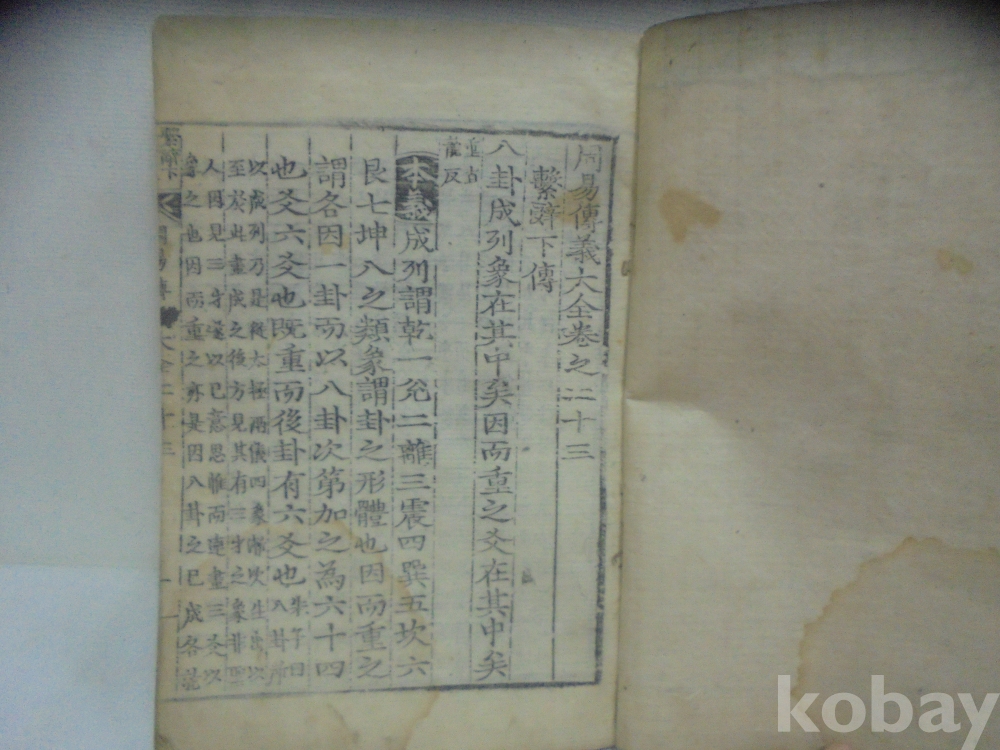 周易傳義大全卷之二十三
繫辭下傳
八卦成列象在其中矣因而重之爻在其中矣
重直
龍反
本義成列謂乾一兌二離三震四巽五坎六
艮七坤八之類象謂卦之形體也因而重之
謂各因一卦而以八卦次第加之為六十四
也爻六爻也既重而後卦有六爻也
朱子曰
八卦所
以成列乃是從太極兩儀四象漸次生出以
至於此畫成之後方見其有三才之象非聖
人因見三才遂以己意思惟而連畫三爻以
象之也因而重之亦是因八卦之已成各就
kobay